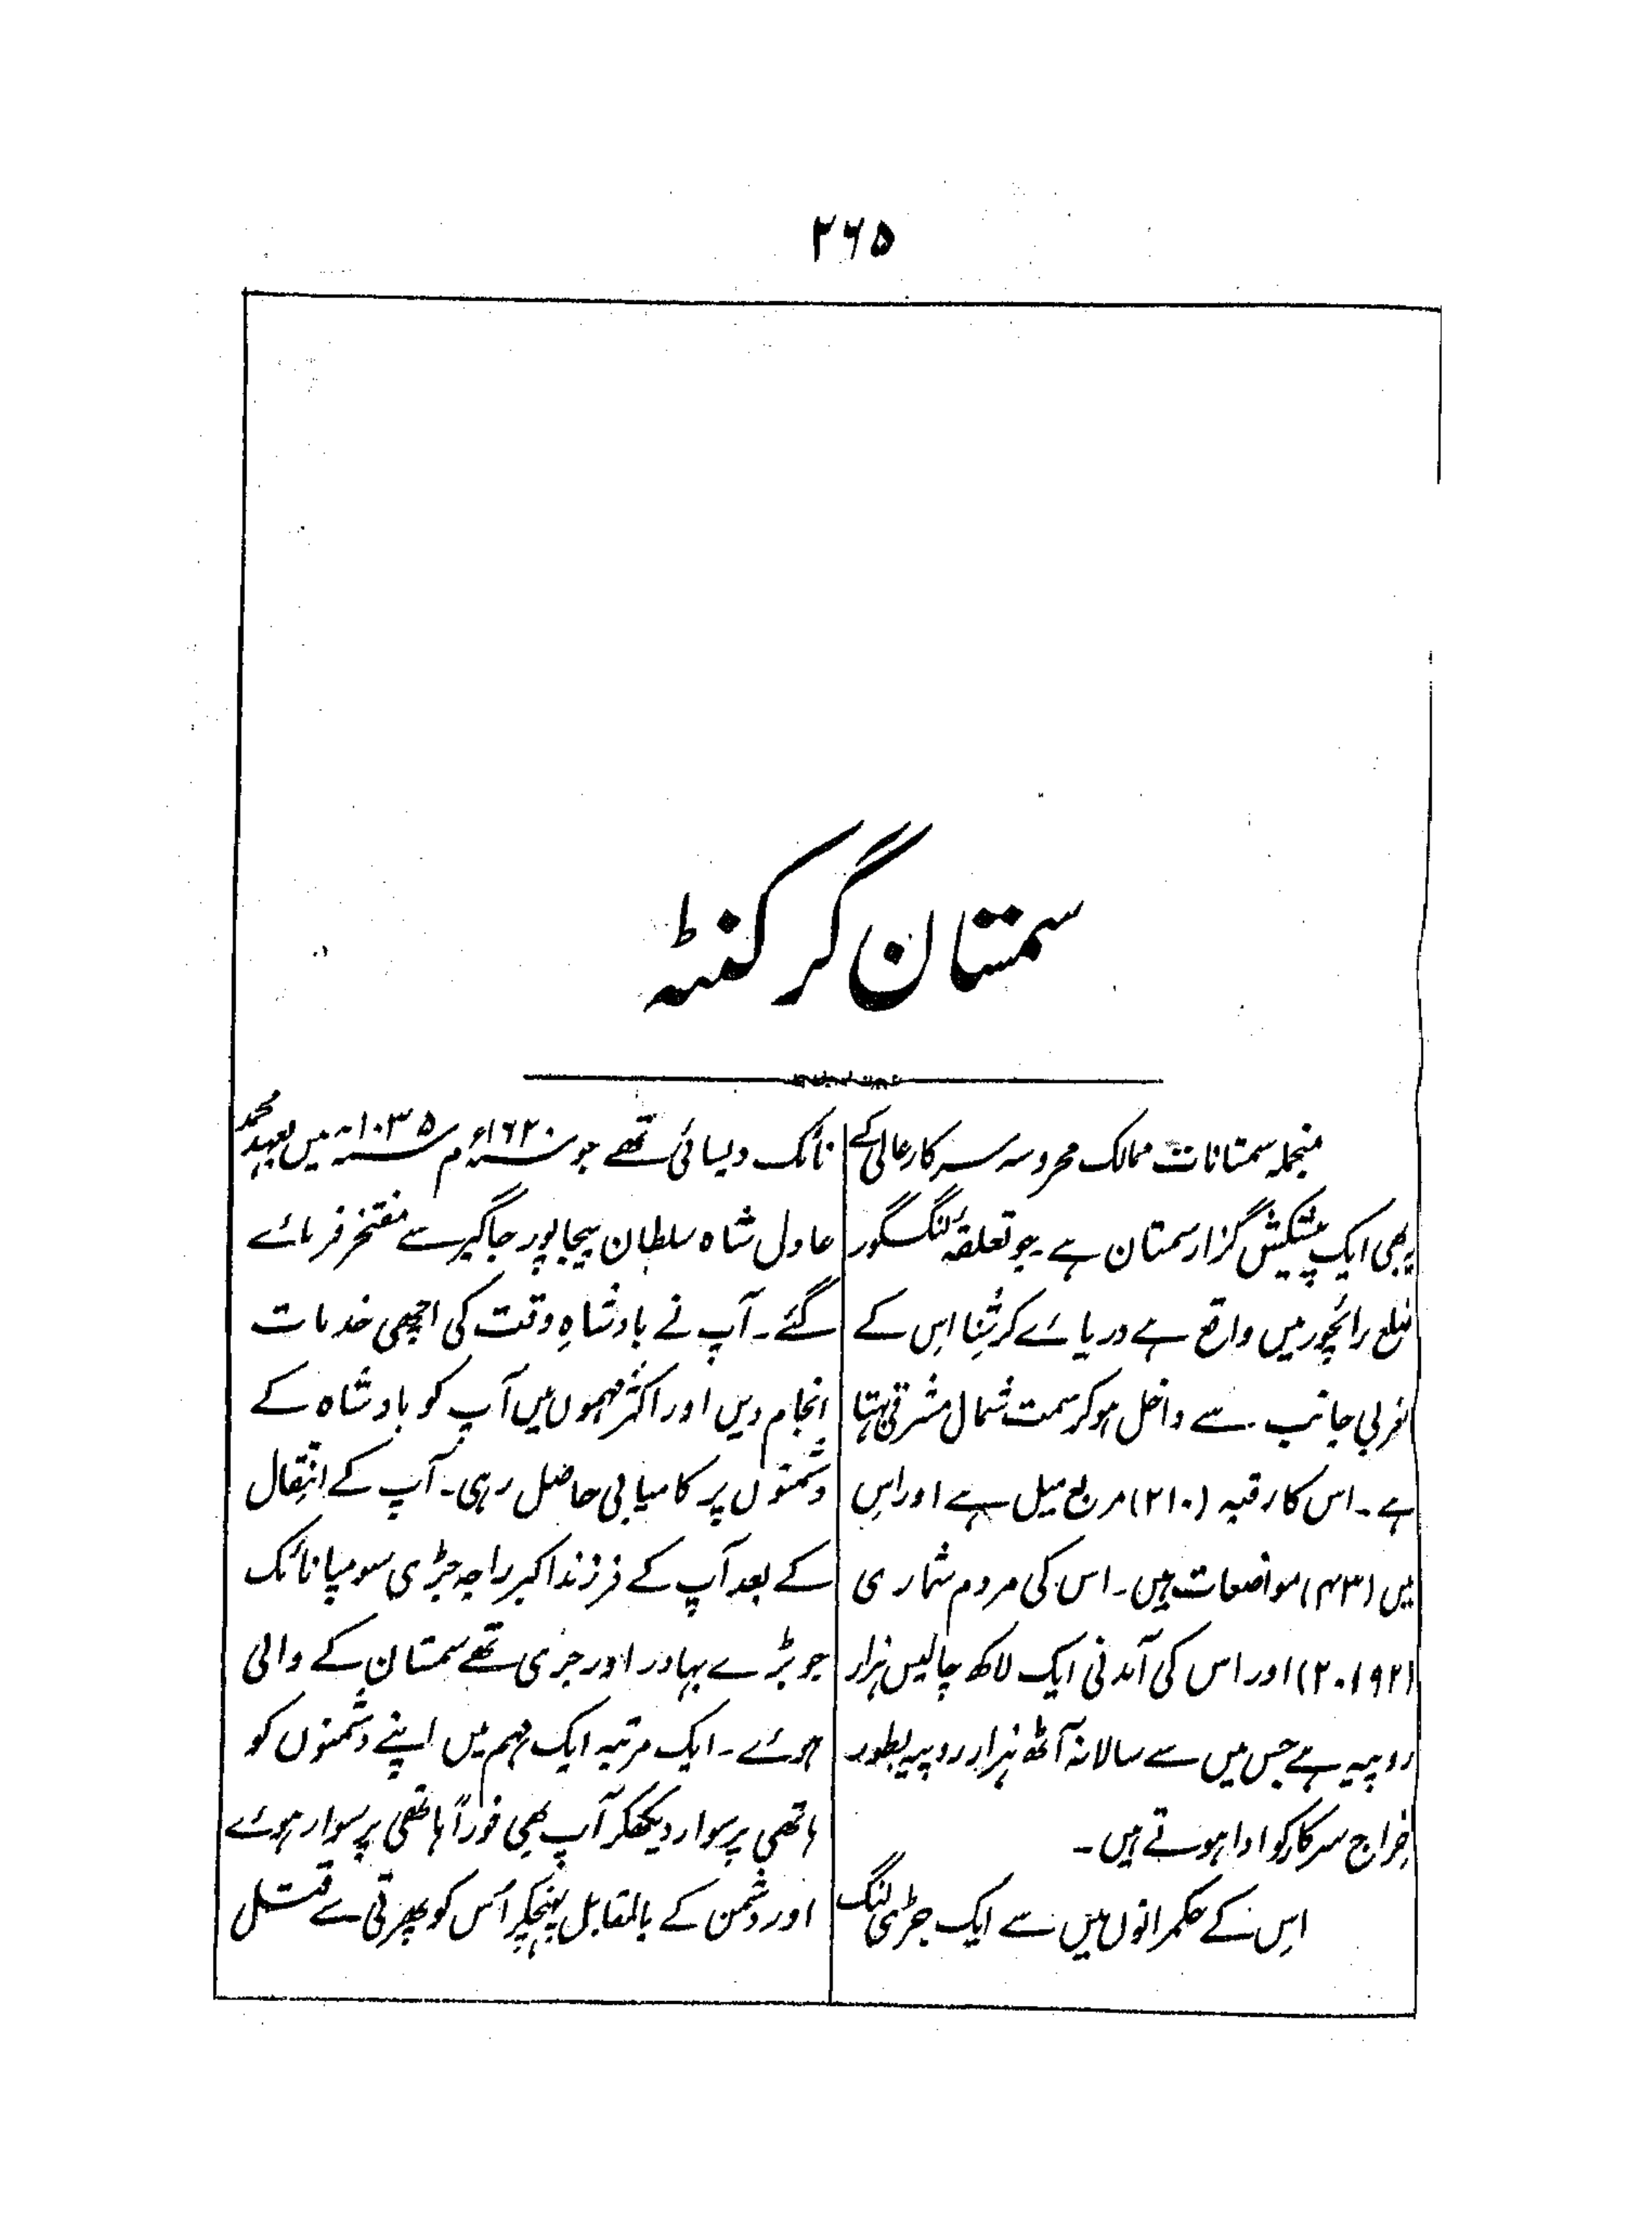 ۲۶۵
سمستان گرگنٹہ
منجملہ سمستانات ممالک محروسہ سرکار عالی کے
یہ بھی ایک پیشکش گزار سمستان ہے۔ جو تعلقہ لنگسگور
ضلع رائچور میں واقع ہے دریائے کرشنا اس کے
مغربی جانب سے داخل ہوکر سمت شمال مشرق بہتا
ہے۔ اس کا رقبہ (۲۱۰) مربع میل ہے اور اس
میں (۴۳) مواضعات ہیں۔ اس کی مردم شماری
(۲۰۱۹۲) اور اس کی آمدنی ایک لاکھ چالیس ہزار
روپیہ ہے جس میں سے سالانہ آٹھ ہزار روپیہ بطور
خراج سرکار کو ادا ہوتے ہیں۔
اس کے حکمرانوں میں سے ایک جڑی لنگ
نائک دیسائی تھے جو ۱۶۲۰ء م ۱۰۳۵ھ میں بعہد محمد
عادل شاہ سلطان بیجاپور جاگیر سے مفتخر فرمائے
گئے۔ آپ نے بادشاہِ وقت کی اچھی خدمات
انجام دیں اور اکثر مہموں میں آپ کو بادشاہ کے
دشمنوں پر کامیابی حاصل رہی۔ آپ کے انتقال
کے بعد آپ کے فرزند اکبر راجہ جڑی سومپا نائک
جو بڑے بہادر اور جری تھے سمستان کے والی
ہوئے۔ ایک مرتبہ ایک مہم میں اپنے دشمنوں کو
ہاتھی پر سوار دیکھکر آپ بھی فوراً ہاتھی پر سوار ہوئے
اور دشمن کے بالمقابل پہنچکر اُس کو پھرتی سے قتل